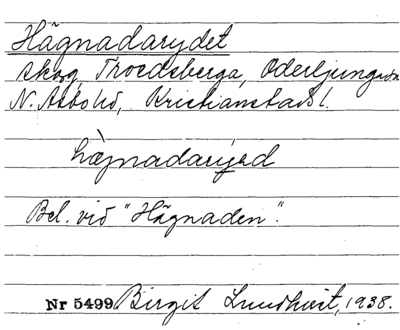 Hägnadarydet
skog Troedsberga, Oderljunga sn
N. Åsbo hd, Kristianstads l.
hægnadarẏed
Bel. vid "Hägnaden".
Nr 5499 Birgit Lundkvist, 1938.